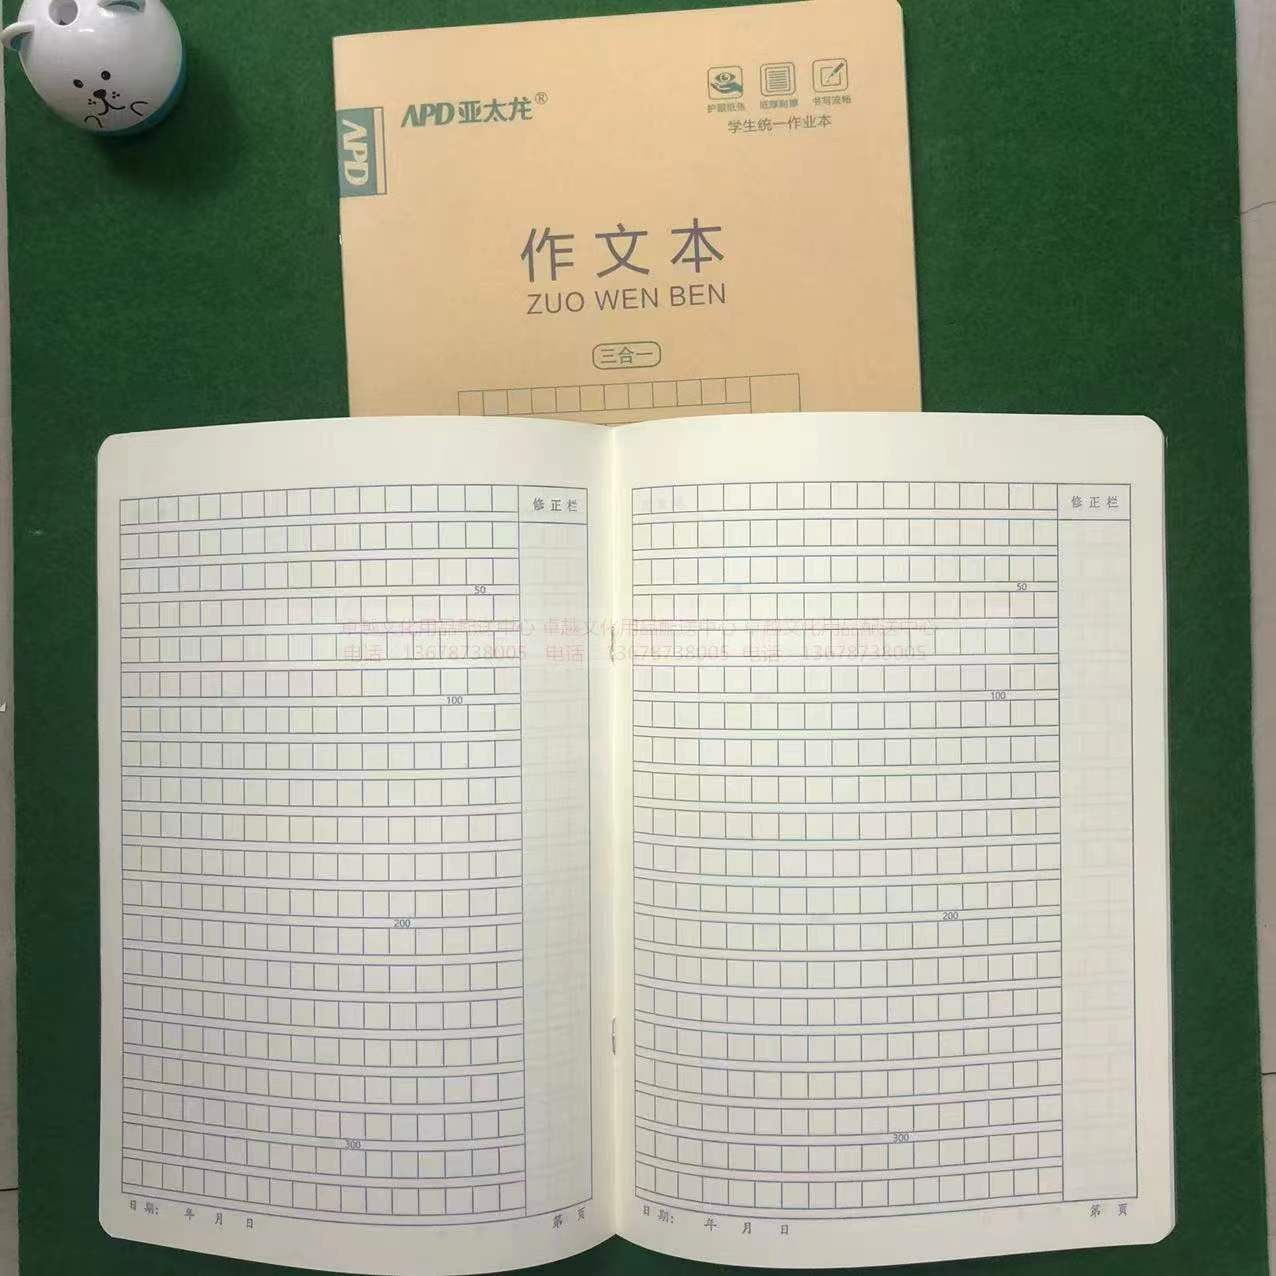 APD 亚太龙®
APD
护眼纸张 纸厚耐擦 书写流畅
学生统一作业本
作文本
ZUO WEN BEN
三合一
修正栏
50
100
200
300
日期: 年 月 日
第 页
修正栏
50
100
200
300
日期: 年 月 日
第 页
卓越文化用品配送中心 卓越文化用品配送中心 卓越文化用品配送中心
电话 13678738005 电话 13678738005 电话 13678738005